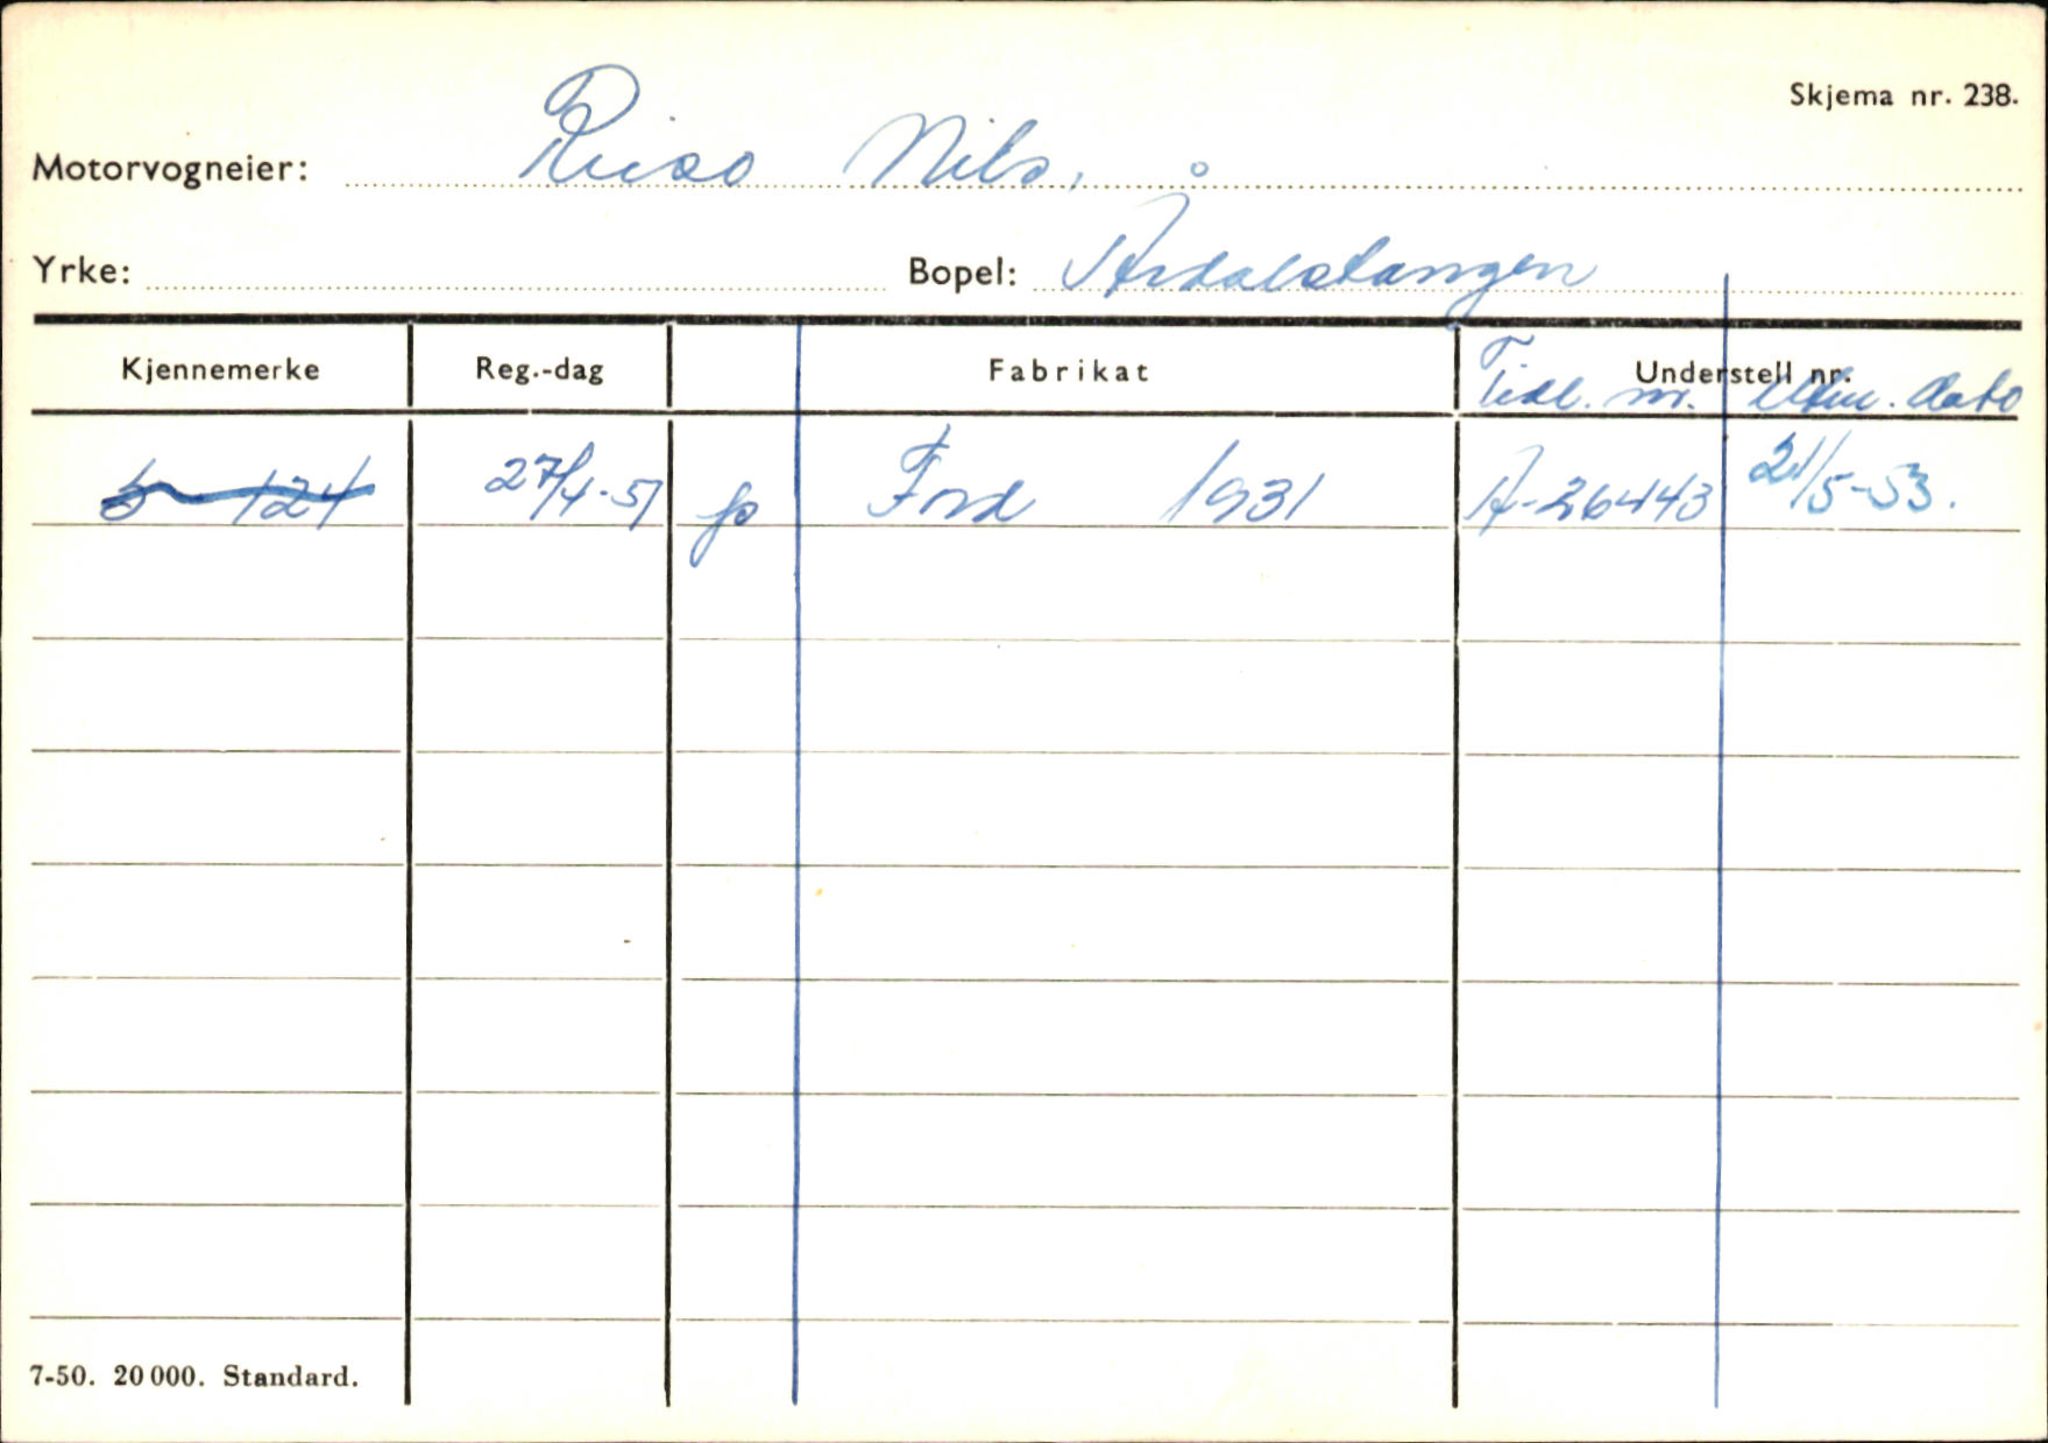 Skjema nr. 238.
Motorvogneier: Nils,
Yrke: Bopel: Årdalstangen
Kjennemerke Reg.-dag Fabrikat Understell nr.
Tidl. nr. dato
S- 124 27/4-51 Ford 1931 A-26443 21/5-53.
7-50. 20 000. Standard.